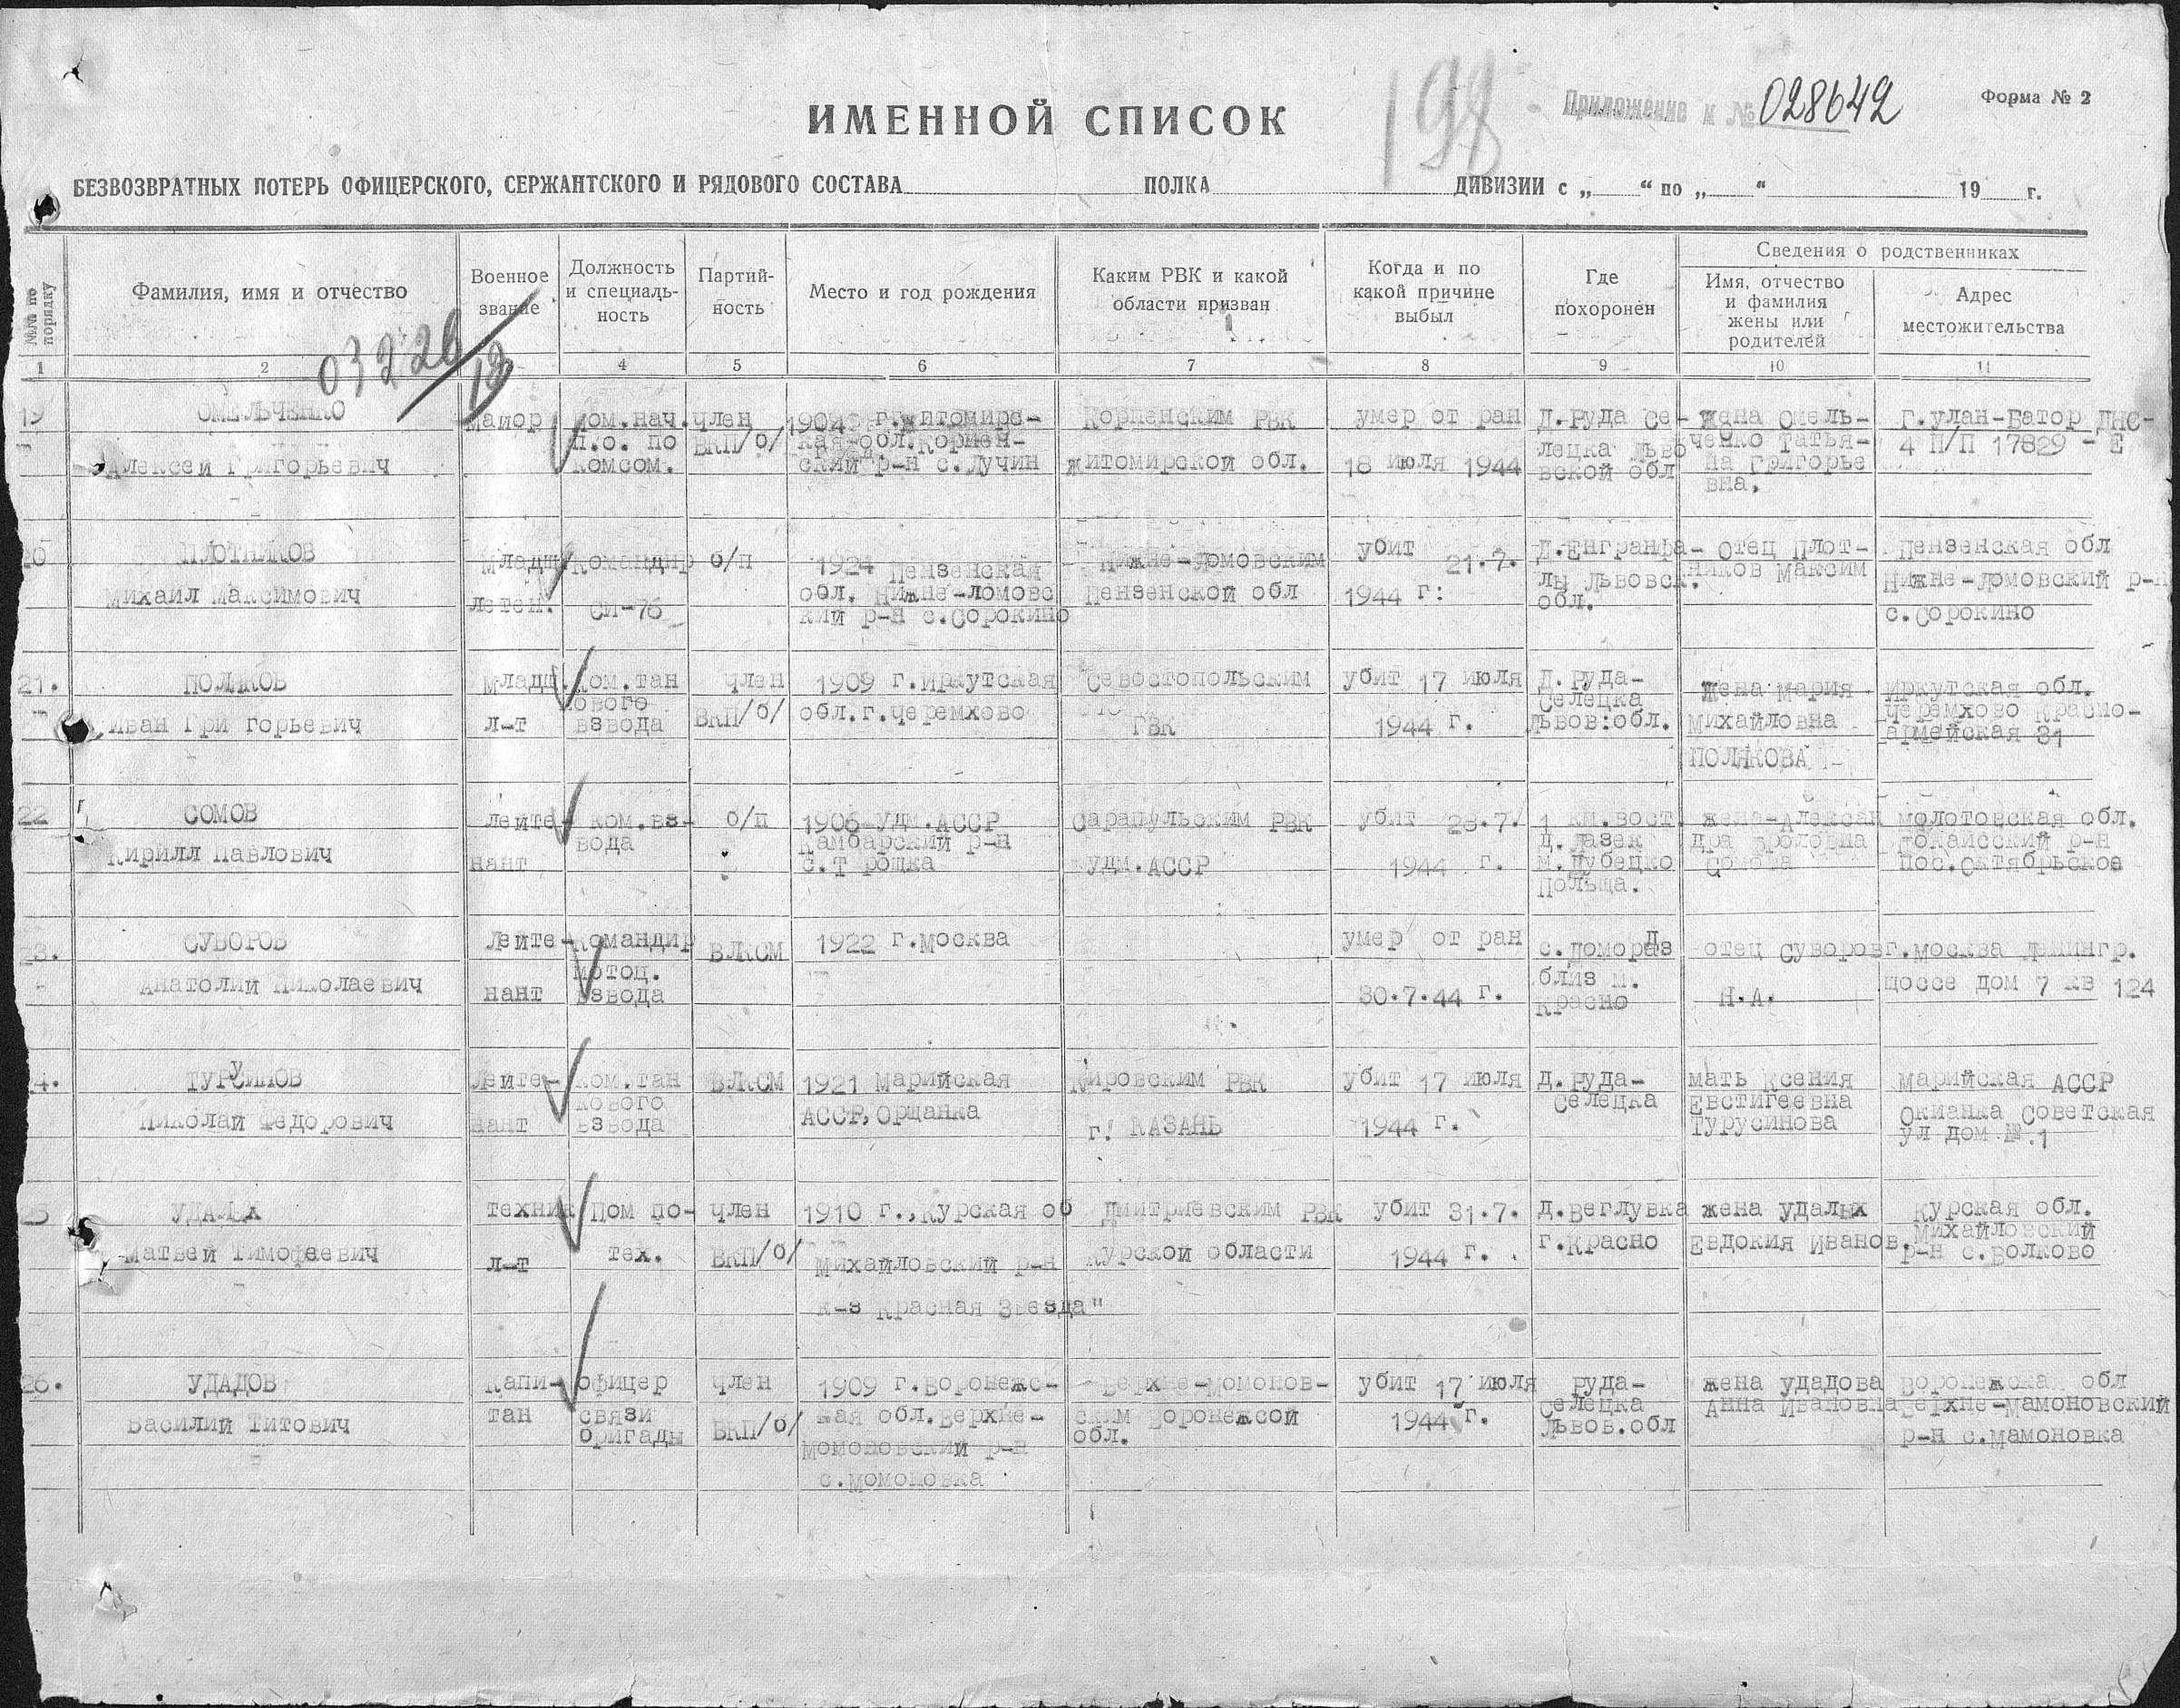 198
Приложение к № 028642
Форма № 2
ИМЕННОЙ СПИСОК
БЕЗВОЗВРАТНЫХ ПОТЕРЬ ОФИЦЕРСКОГО, СЕРЖАНТСКОГО И РЯДОВОГО СОСТАВА ПОЛКА ДИВИЗИИ с „ “ по „ “ 19 г.
№№ по порядку
Фамилия, имя и отчество
Военное звание
Должность и специаль- ность
Партий- ность
Место и год рождения
Каким РВК и какой области призван
Когда и по какой причине выбыл
Где похоронен
Сведения о родственниках
Имя, отчество и фамилия жены или родителей
Адрес местожительства
03226/12
1 2 4 5 6 7 8 9 10 11
19 ОМЕЛЬЧЕНКО майор пом.нач. член 1904 г.Житомирс- Корпенским РВК умер от ран Д.Руда Се- жена Омель- г.Улан-Батор ДНС-
п.о. по ВКП/б/ кая обл. лецка Льво ченко Татья- 4 П/П 17829 - Е
Алексей Григорьевич комсом. ский р-н с.Лучин Житомирской обл. 18 июля 1944 вской обл на Григорье
вна.
20 ПЛОТНИКОВ Младш Командир б/п 1924 Пензенская Нижне-Ломовским убит 21.7. Д.Енгранфа- отец Плот- Пензенская обл
Михаил Максимович летен. СИ-76 обл. Нижне-ломовс Пензенской обл 1944 г: лы Львовск. ников Максим Нижне-Ломовский р-н
кий р-н с.Сорокино обл. с.Сорокино
21. ПОЛЯКОВ Младш. Ком.тан член 1909 г.Иркутская Севостопольским убит 17 июля Д.Руда- Жена Мария Иркутская обл.
кового Селецка Черемхово Красно-
Иван Гри горьевич л-т взвода ВКП/б/ обл.г.Черемхово ГВК 1944 г. Львов:обл. Михайловна армейская 31
ПОЛЯКОВА
22 СОМОВ Лейте- ком.вз- б/п 1906 Удм.АССР Сарапульским РВК убит 28.7. 1 км.вост. жена-Алексан Молотовская обл.
вода Камбарский р-н Д.Лазек дра р-н
Кирилл Павлович нант удм.АССР 1944 г. м.Дубецко Сомова пос.Октябрьское
Польша.
23. СУВОРОВ Лейте- Командир ВЛКСМ 1922 г.Москва умер от ран с.Домораз отец Суворов г.Москва Ленингр.
мотоц. близ м.
Анатолий Николаевич нант взвода 30.7.44 г. Красно Н.А. шоссе дом 7 кв 124
4. ТУРУСИНОВ Лейте- ком.тан ВЛКСМ 1921 Марийская Кировским РВК убит 17 июля Д.Руда- мать Ксения Марийская АССР
кового Селецка Евстигеевна
Николай Федорович нант взвода АССР,Оршанка г. КАЗАНЬ 1944 г. Турусинова Окианка Советская
ул дом № 1
УДАЛЫХ техник Пом по- член 1910 г.,Курская об Дмитриевским РВК убит 31.7. Д.Веглувка жена Удалых Курская обл.
Михайловский
Матвей Тимофеевич л-т тех. ВКП/б/ Михайловский р-н Курской области 1944 г. г.Красно Евдокия Иванов. р-н с.Волково
к-з Красная Звезда"
26. УДАДОВ Капи- офицер член 1909 г.Воронежс- Верхне-Момонов- убит 17 июля Руда- жена Удадова Воронежска обл
тан связи кая обл.Верхне- ским Воронежсой Селецка Анна Ивановна Верхне-Мамоновский
Василий Титович бригады ВКП/б/ Момоновский р-н обл. 1944 г. Львов.обл р-н с.Мамоновка
с.Момоновка